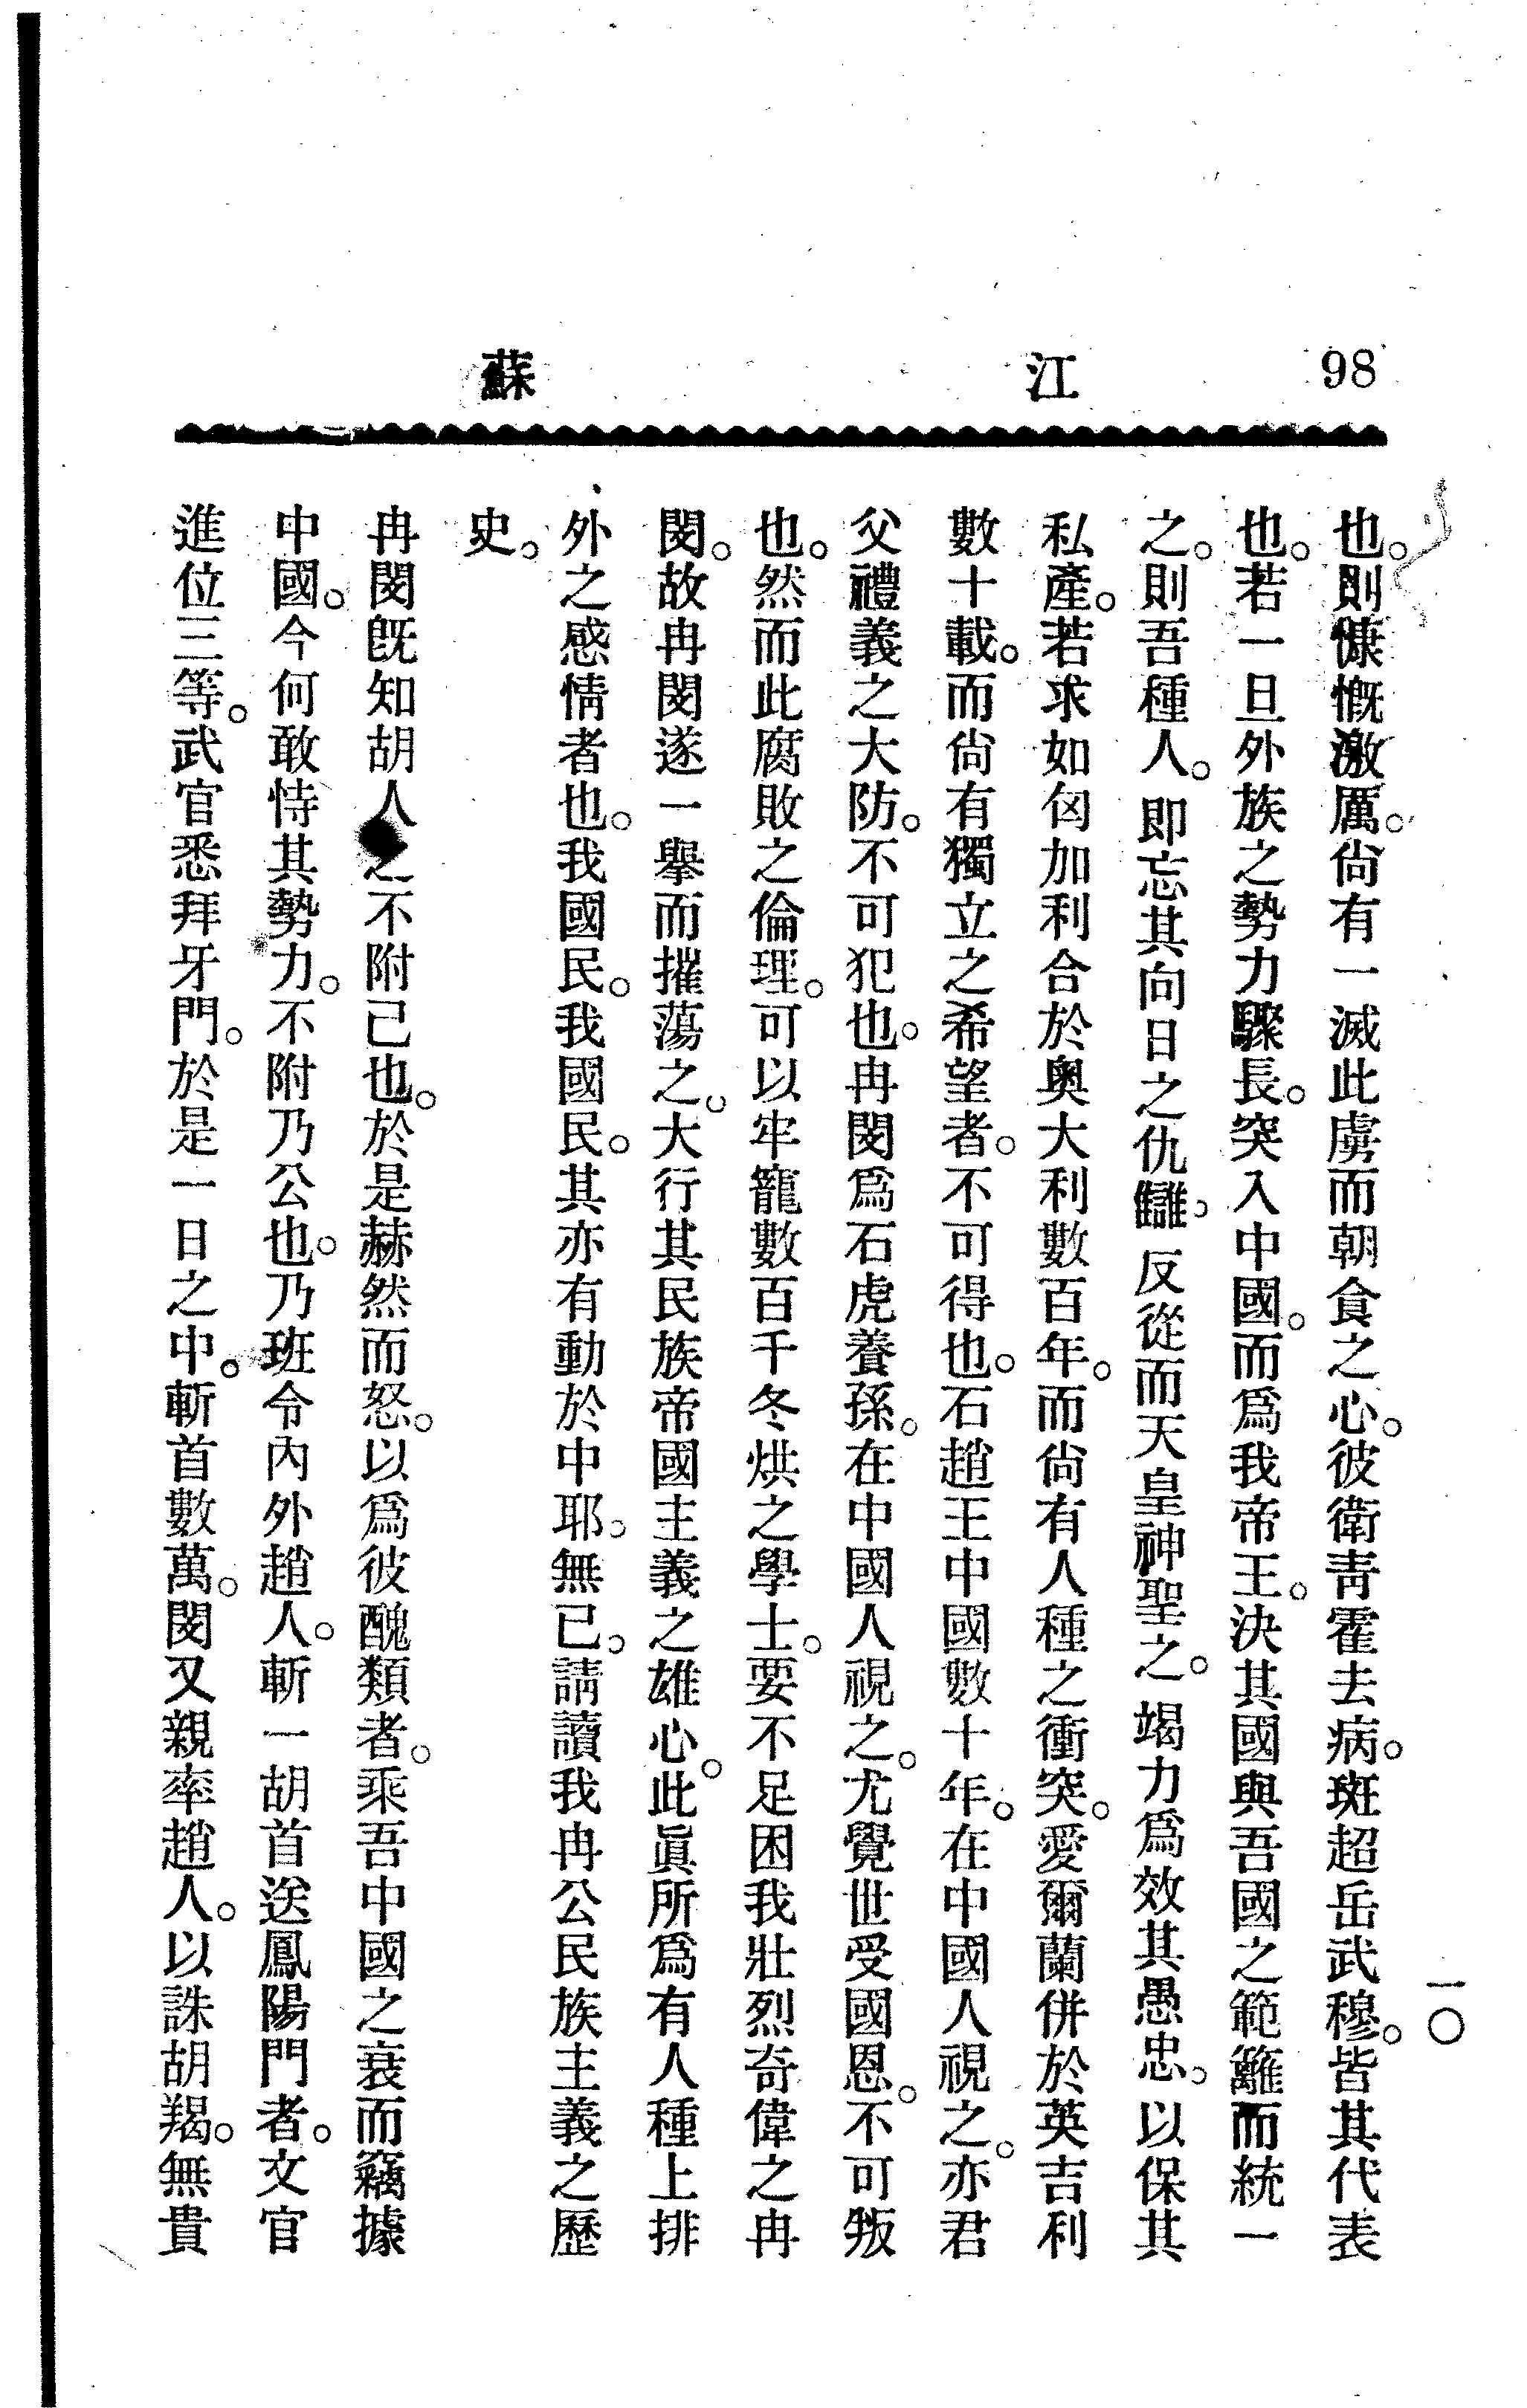 98
江蘇
一〇
也。則慷慨激厲。尙有一滅此虜而朝食之心。彼衛靑霍去病。斑超岳武穆。皆其代表
也。若一旦外族之勢力驟長。突入中國。而爲我帝王。決其國與吾國之範籬而統一
之。則吾種人。卽忘其向日之仇讎。反從而天皇神聖之。竭力爲效其愚忠。以保其
私產。若求如匈加利合於奧大利數百年。而尙有人種之衝突。愛爾蘭併於英吉利
數十載。而尙有獨立之希望者。不可得也。石趙王中國數十年。在中國人視之。亦君
父禮義之大防。不可犯也。冉閔爲石虎養孫。在中國人視之。尤覺世受國恩。不可叛
也。然而此腐敗之倫理。可以牢籠數百千冬烘之學士。要不足困我壯烈奇偉之冉
閔。故冉閔遂一擧而摧蕩之。大行其民族帝國主義之雄心。此眞所爲有人種上排
外之感情者也。我國民。我國民。其亦有動於中耶。無已。請讀我冉公民族主義之歷
史。
冉閔旣知胡人之不附己也。於是赫然而怒。以爲彼醜類者。乘吾中國之衰而竊據
中國。今何敢恃其勢力。不附乃公也。乃班令內外趙人。斬一胡首送鳳陽門者。文官
進位三等。武官悉拜牙門。於是一日之中。斬首數萬。閔又親率趙人。以誅胡羯。無貴